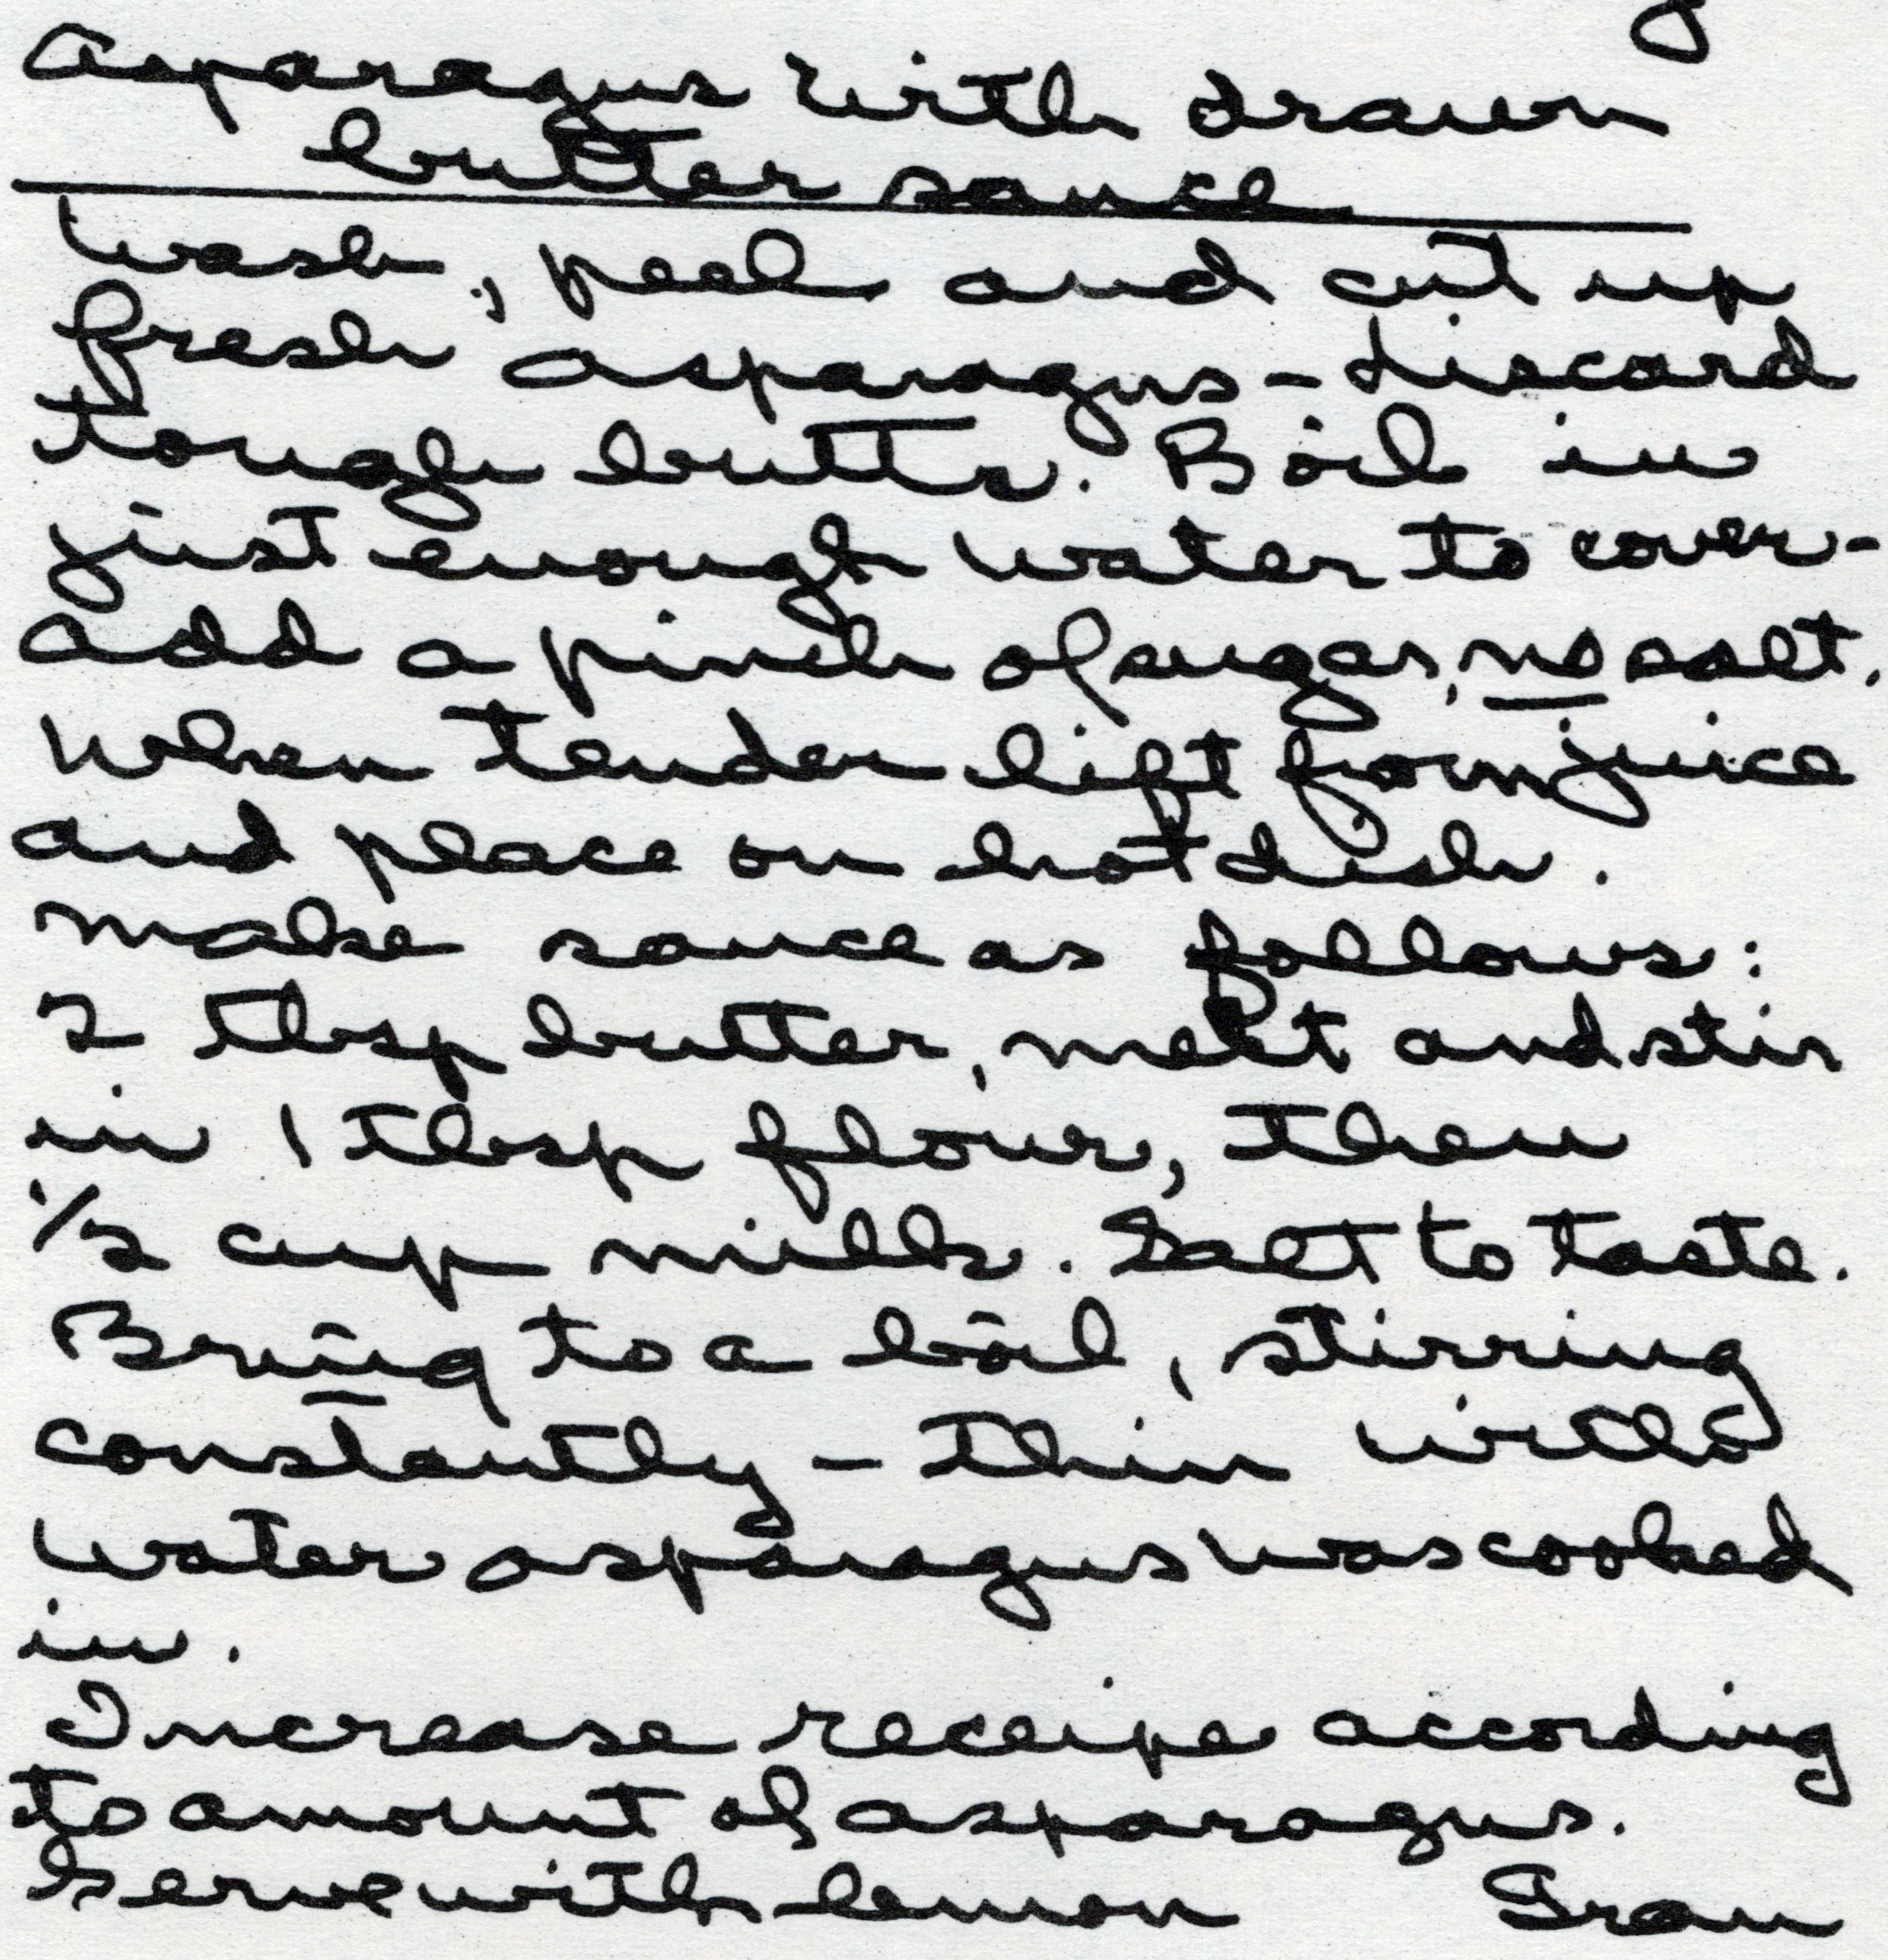 Asparagus with drawn
butter sauce
Wash, peel and cut up
fresh asparagus - discard
tough butts. Boil in
just enough water to cover -
add a pinch of sugar, no salt.
When tender lift from juice
and place on hot dish.
Make sauce as follows:
2 tbsp butter, melt and stir
in 1 tbsp flour, then
1/2 cup milk. Salt to taste.
Bring to a boil, stirring
constantly - thin with
water asparagus was cooked
in.
Increase receipe according
to amount of asparagus.
Serve with lemon Gran